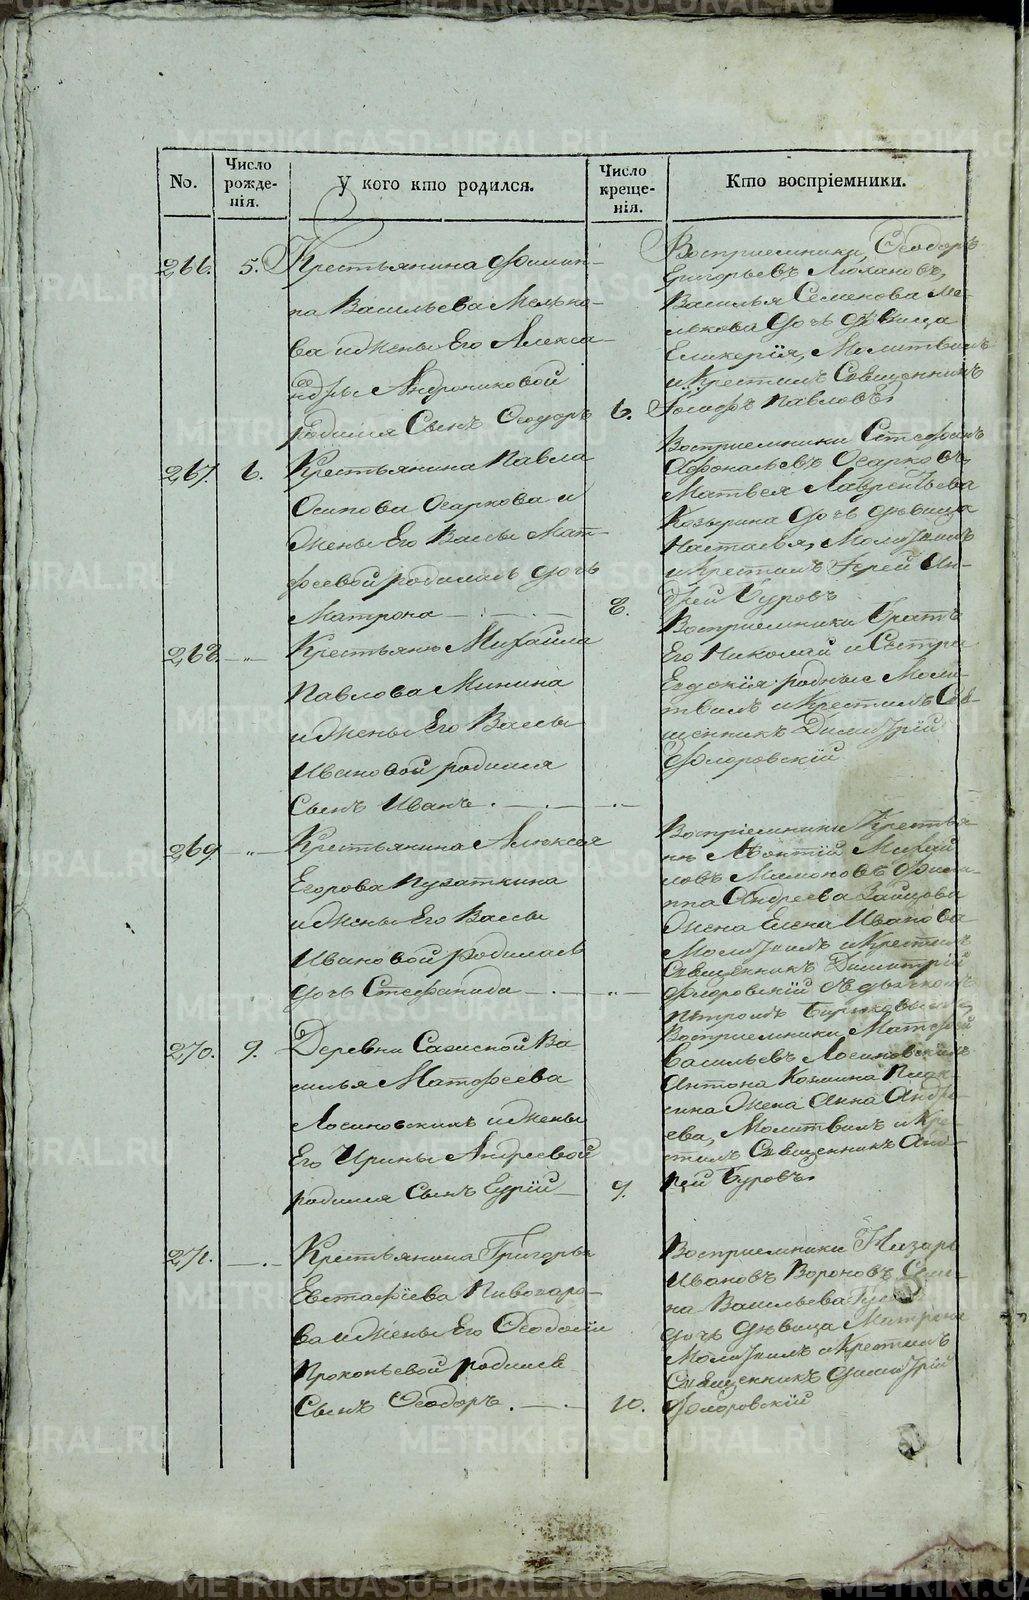 No.
Число рожде-нія.
У кого кто родился.
Число креще-нія.
Кто воспріемники.
266.
5.
Крестьянина Филип-
па Васильева Мелько-
ва и жены Его Алекса-
ндры Андрониковой
родился Сынъ Ѳеодоръ
6.
Восприемники, Ѳеодоръ
Григорьевъ
Василья Семенова Ме-
лькова дочь дѣвица
Гликерія, Молитвилъ
и Крестилъ Священникъ
Іосифъ Павловъ.
267.
6.
Крестьянина Павла
Осипова Огаркова и
жены Его Вассы Мат-
фѣевой родилась дочь
Матрона
8.
Восприемники Стефанъ
Афонасьевъ Огарковъ
Матвея Лаврентьева
Козырина дочь дѣвица
Настасья, Молитвилъ
и Крестилъ Іерей Ан-
дрей Буровъ
268.
Крестьян. Михайла
Павлова Минина
и жены Его Вассы
Ивановой родился
Сынъ Иванъ.
Восприемники Братъ
Его Николай и Сестра
Евдокія родные Моли-
твилъ и Крестилъ Свя-
щенникъ Димитрій
Флоровскій
269.
Крестьянина Алексея
Егорова Пузаткина
и жены Его Вассы
Ивановой родилась
дочь Стефанида
Воспріемники Крестья-
нъ Леонтій Михай
ловъ Мамоновъ Фили-
ппа Андреева Зайцова
Жена Елена Иванова
Молитвилъ и Крестилъ
Священникъ Димитрій
Флоровскій съ дьячкомъ
Петромъ Бирюковымъ,
270.
9.
Деревни Ва
силья Матфеева
Лосиновскихъ и жены
Его Ирины Андреевой
родился Сынъ
9.
Восприемники Матфей
Васильевъ Лосиновскихъ
Антона Козмина
Жена Анна Андре-
ева, Молитвилъ и Кре
стилъ Священникъ Анд-
рей Буровъ.
271.
Крестьянина Григорья
Евстафіева Пивовaро-
ва и жены Его Ѳеодосіи
Прокопьевой родился
Сынъ Ѳеодоръ.
10.
Восприемники Назаръ
Ивановъ Вороновъ
Васильева
дочь дѣвица Матрона
Молитвилъ и Крестилъ
Священникъ Димитрій
Флоровскій